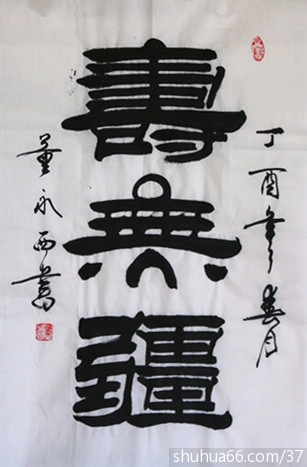 丁酉年春月
壽無疆
董永西書
shuhua66.com/37